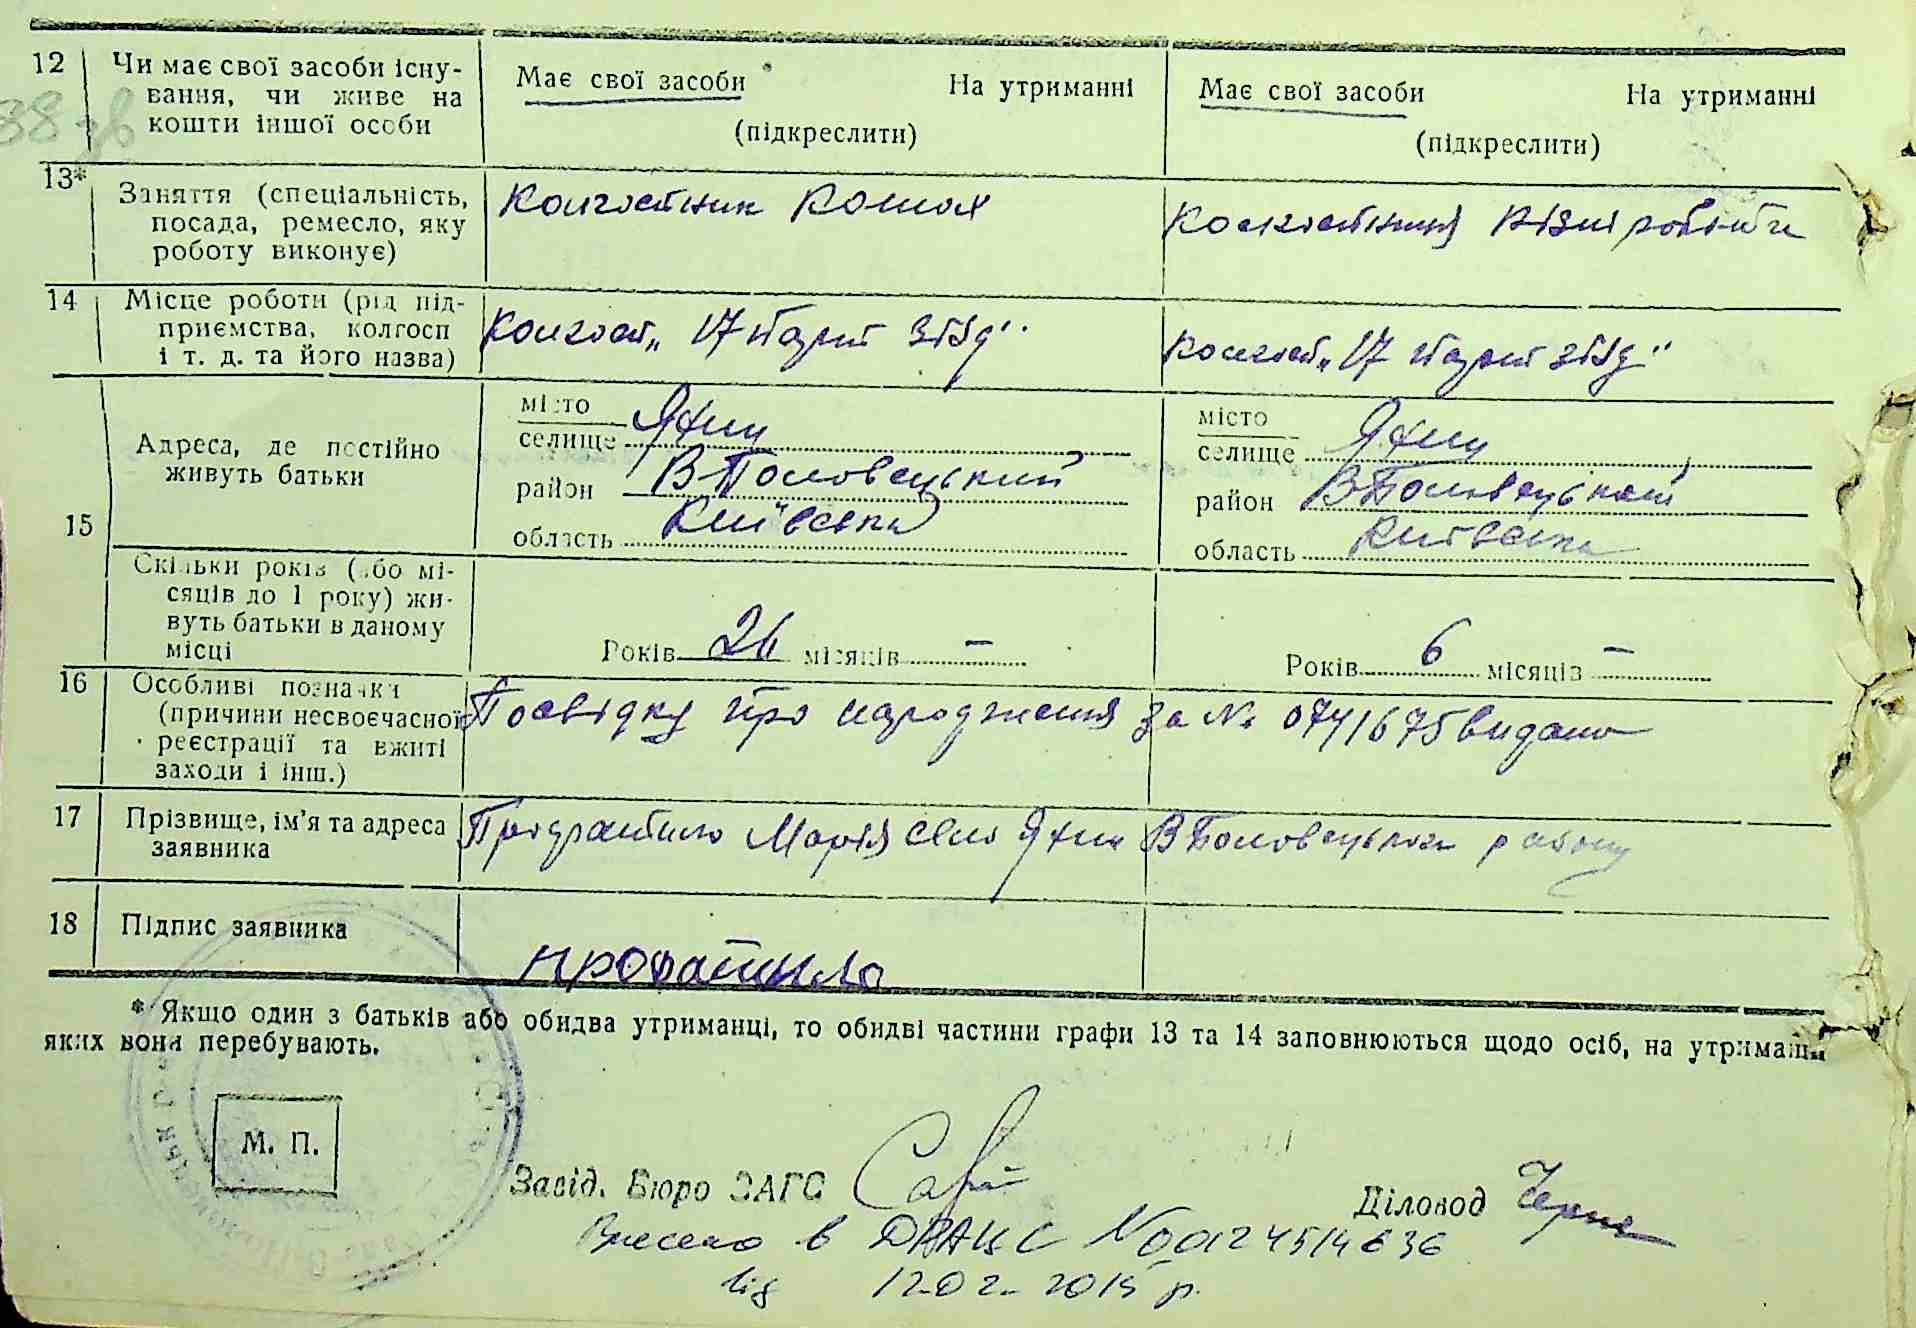 12 Чи має свої засоби існу-
вання, чи живе на
кошти іншої особи
Має свої засоби На утриманні
(підкреслити)
Має свої засоби На утриманні
(підкреслити)
13* Заняття (спеціальність,
посада, ремесло, яку
роботу виконує)
Колгоспник
Колгоспниця різні роботи
14 Місце роботи (рід під-
приємства, колгосп
і т. д. та його назва)
Колгосп „17 парт зїзд"
Колгосп „17 парт зїзд"
15 Адреса, де постійно
живуть батьки
місто
селище Яхни
район В Половецький
область Київська
місто
селище Яхни
район В Половецький
область Київська
Скільки років (або мі-
сяців до 1 року) жи-
вуть батьки в даному
місці
Років 26 місяців –
Років 6 місяців –
16 Особливі позначки
(причини несвоєчасної
реєстрації та вжиті
заходи і інш.)
Посвідку про народження за № 0741675 видано
17 Прізвище, ім’я та адреса
заявника
Марія село Яхни В Половецького району
18 Підпис заявника
* Якщо один з батьків або обидва утриманці, то обидві частини графи 13 та 14 заповнюються щодо осіб, на утриманні
яких вони перебувають.
М. П.
Завід. Бюро ЗАГС
Діловод
Внесено в ДРАЦС №00124514636
від 12.02.2015 р.